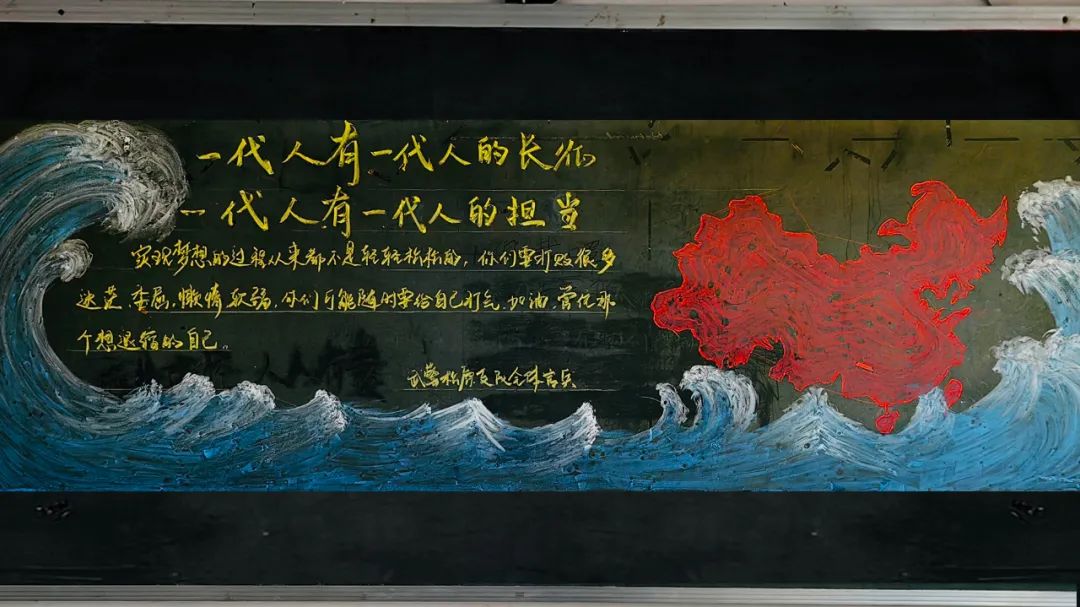 一代人有一代人的长征
一代人有一代人的担当
实现梦想的过程从来都不是轻轻松松的,你们要打败很多
迷茫、委屈、懒惰、软弱,你们可能随时要给自己打气、加油、管住那
个想退缩的自己。
武警松原支队全体官兵